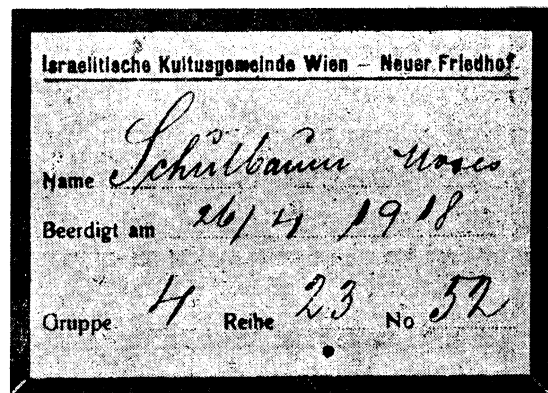 Israelitische Kultusgemeinde Wien – Neuer Friedhof.
Name Schulbaum Moses
Beerdigt am 26/4 1918
Gruppe 4 Reihe 23 No 52